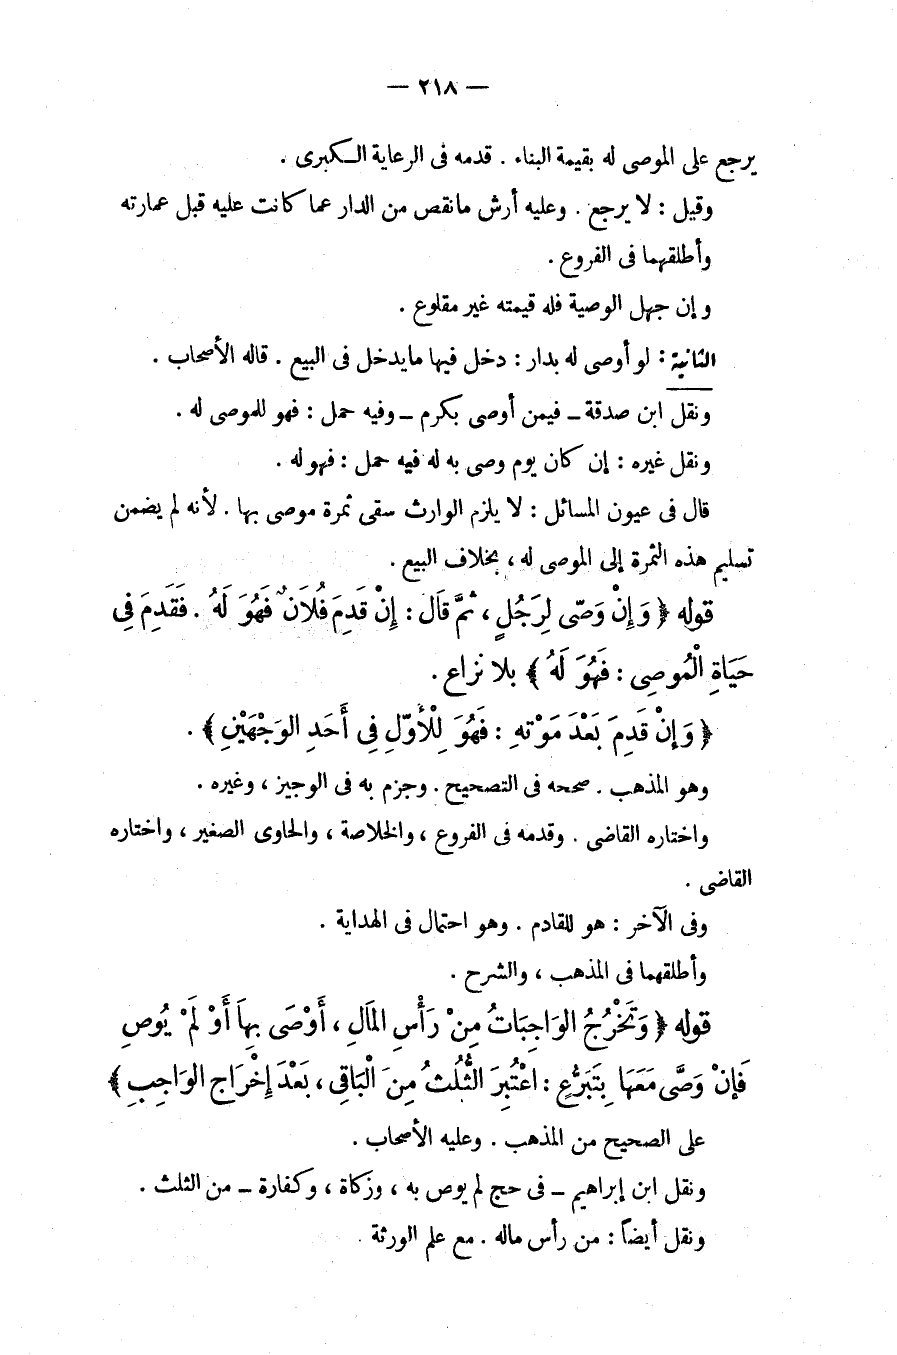 — ٢١٨ —
يرجع على الموصى له بقيمة البناء . قدمه فى الرعاية الكبرى .
وقيل : لا يرجع . وعليه أرش مانقص من الدار عما كانت عليه قبل عمارته
وأطلقهما فى الفروع .
وإن جهل الوصية فله قيمته غير مقلوع .
الثانية : لو أوصى له بدار : دخل فيها مايدخل فى البيع . قاله الأصحاب .
ونقل ابن صدقة ــ فيمن أوصى بكرم ــ وفيه حمل : فهو للموصى له .
ونقل غيره : إن كان يوم وصى به له فيه حمل : فهو له .
قال فى عيون المسائل : لا يلزم الوارث سقى ثمرة موصى بها . لأنه لم يضمن
تسليم هذه الثمرة إلى الموصى له ، بخلاف البيع .
قوله ﴿ وَإِنْ وَصّى لِرَجُلٍ ، ثمَّ قَالَ : إِنْ قَدِمَ فُلَانٌ فَهُوَ لَهُ . فَقَدِمَ فِى
حَيَاةِ الْمُوصِى : فَهُوَ لَهُ ﴾ بلا نزاع .
﴿ وَإنْ قَدِمَ بَعْدَ مَوْتهِ : فَهُوَ لِلْأَوّلِ فِى أَحَدِ الوَجْهَيْنِ ﴾ .
وهو المذهب . صححه فى التصحيح . وجزم به فى الوجيز ، وغيره .
واختاره القاضى . وقدمه فى الفروع ، والخلاصة ، والحاوى الصغير ، واختاره
القاضى .
وفى الآخر : هو للقادم . وهو احتمال فى الهداية .
وأطلقهما فى المذهب ، والشرح .
قوله ﴿ وَتَخْرُجُ الوَاجِبَاتُ مِنْ رَأْسِ المَالِ ، أَوْصَى بِهاَ أَوْ لَمْ يُوصِ
فَإنْ وَصَّى مَعَهَا بِتَبَرُّعٍ : اعْتُبِرَ الثُّلُثُ مِنَ الْبَاقِى ، بَعْدَ إِخْرَاجِ الوَاجِبِ ﴾
على الصحيح من المذهب . وعليه الأصحاب .
ونقل ابن إبراهيم ــ فى حج لم يوص به ، وزكاة ، وكفارة ــ من الثلث .
ونقل أيضاً : من رأس ماله . مع علم الورثة